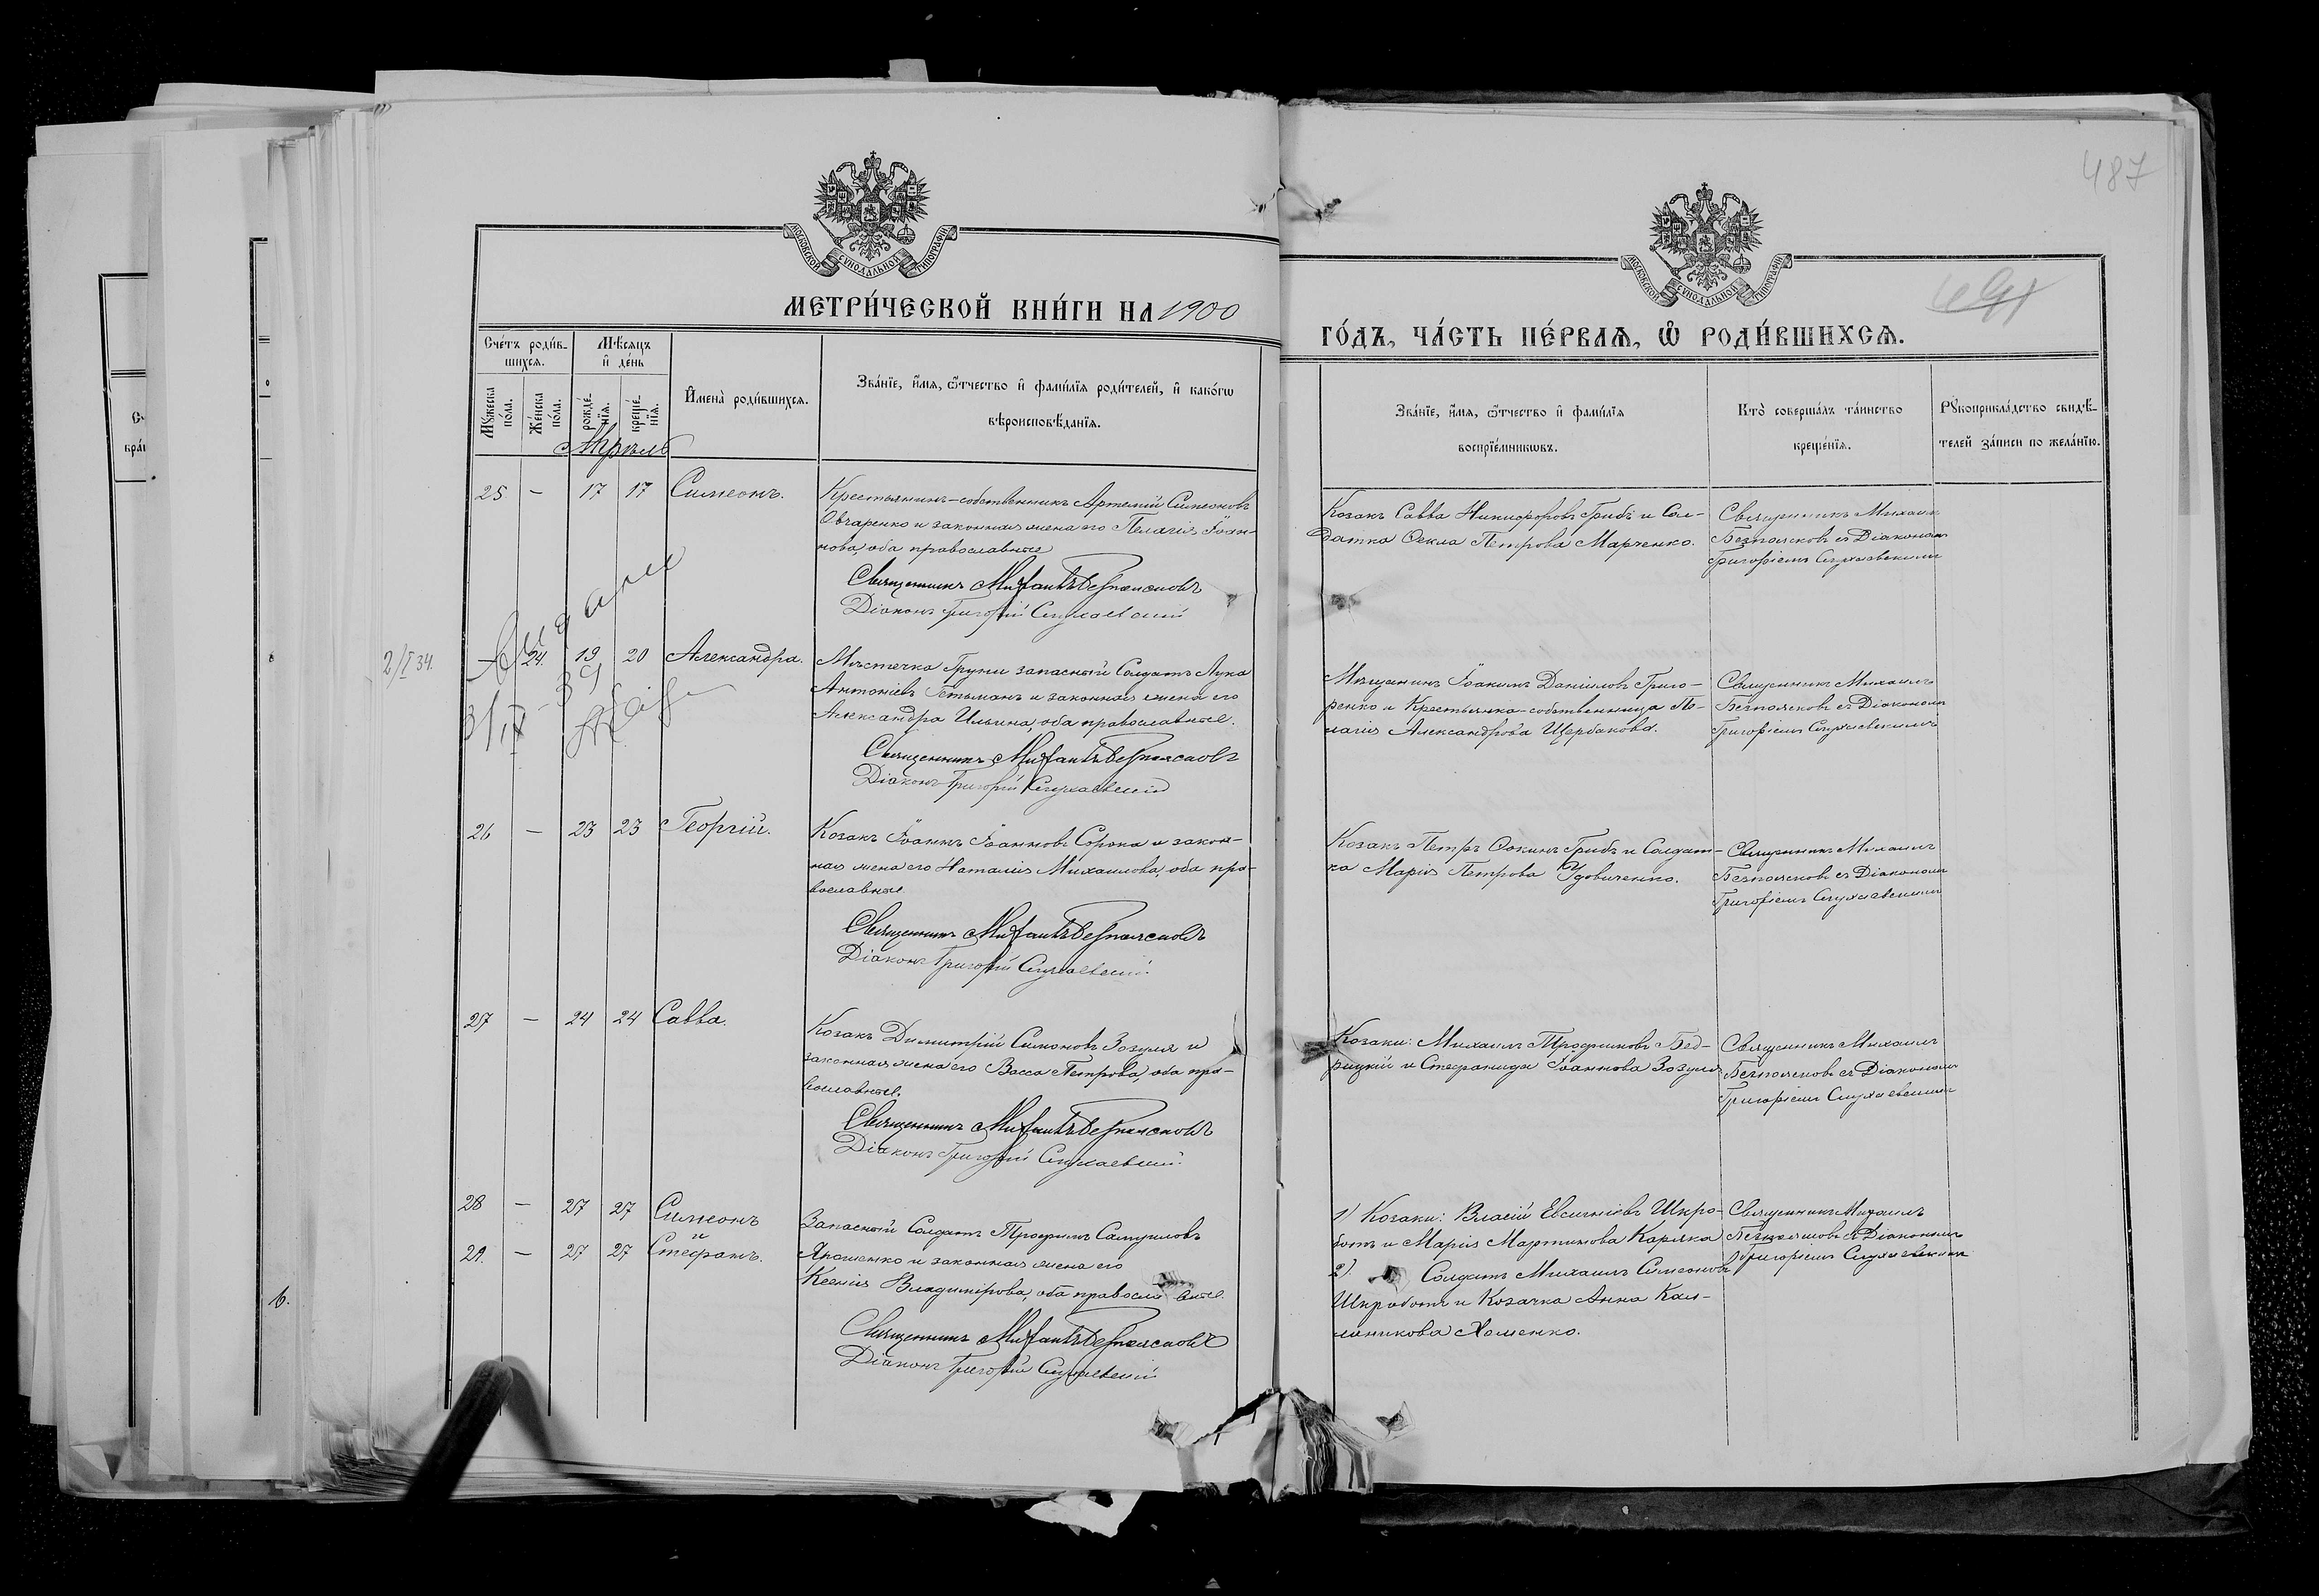 487
МОСКОВСКОЙ СУНОДАЛЬНОЙ ТИПОГРАФІИ
МОСКОВСКОЙ СУНОДАЛЬНОЙ ТИПОГРАФІИ
МЕТРИ́ЧЕСКОЙ КНИ́ГИ НА 1900
ГО́ДЪ, ЧА́СТЬ ПЕ́РВАѦ, Ѡ҆ РОДИ́ВШИХСѦ.
Сче́тъ роди́в-
шихся.
Мѣсяцъ
и҆ де́нь
Мꙋ́жеска
по́ла.
Же́нска
по́ла.
рожде́-
нїѧ.
креще́-
нїѧ.
И҆мена̀ роди́вшихсѧ.
Зва́нїе, и҆́мѧ, ѻ҆́тчество и҆ фами́лїѧ роди́телей, и҆ како́гѡ
вѣроисповѣ́данїѧ.
Зва́нїе, и҆́мѧ, ѻ҆́тчество и҆ фами́лїѧ
воспрїе́мникѡвъ.
Кто̀ соверша́лъ та́инство
креще́нїѧ.
Рꙋкоприкла́дство свидѣ́-
телей за́писи по жела́нїю.
Апрѣль
25 — 17 17 Симеонъ.
Крестьянинъ-собственникъ Артемій Симеоновъ
Овчаренко и законная жена его Пелагія Іоан-
нова, оба православные
Священникъ Михаилъ Безпоясковъ
Діаконъ Григорій Слухаевскій
Козакъ Савва Никифоровъ Грибъ и Сол-
датка Ѳекла Петрова Марченко.
Священникъ Михаилъ
Безпоясковъ съ Діакономъ
Григоріемъ Слухаевскимъ
2/I 34.
— 24. 19 20 Александра.
Мѣстечка Груни запасный Солдатъ Лука
Антоніевъ Гетьманъ и законная жена его
Александра Ильина, оба православные.
Священникъ Михаилъ Безпоясковъ
Діаконъ Григорій Слухаевскій
Мѣщанинъ Іоакимъ Даніиловъ Григо-
ренко и Крестьянка-собственница Пе-
лагія Александрова Щербакова.
Священникъ Михаилъ
Безпоясковъ съ Діакономъ
Григоріемъ Слухаевскимъ
26 — 23 23 Георгій.
Козакъ Іоаннъ Іоанновъ Сорока и закон-
ная жена его Наталія Михаилова, оба пра-
вославные.
Священникъ Михаилъ Безпоясковъ
Діаконъ Григорій Слухаевскій.
Козакъ Петръ Ѳокинъ Грибъ и Солдат-
ка Марія Петрова Удовиченко.
Священникъ Михаилъ
Безпоясковъ съ Діакономъ
Григоріемъ Слухаевскимъ
27 — 24 24 Савва.
Козакъ Димитрій Симоновъ Зозуля и
законная жена его Васса Петрова, оба пра-
вославные.
Священникъ Михаилъ Безпоясковъ
Діаконъ Григорій Слухаевскій.
Козаки: Михаилъ Трофимовъ Бед-
рицкій и Стефанида Іоаннова Зозуля
Священникъ Михаилъ
Безпоясковъ съ Діакономъ
Григоріемъ Слухаевскимъ
28 — 27 27 Симеонъ
и
29. — 27 27 Стефанъ.
Запасный Солдатъ Трофимъ Самуиловъ
Яношенко и законная жена его
Ксенія Владимірова, оба православные.
Священникъ Михаилъ Безпоясковъ
Діаконъ Григорій Слухаевскій
1) Козаки: Власій Евсигніевъ Шкро-
ботъ и Марія Мартинова Коряка
2). Солдатъ Михаилъ Симеоновъ
Шкроботъ и Козачка Анна Кал-
линикова Хоменко.
Священникъ Михаилъ
Безпоясковъ съ Діакономъ
Григоріемъ Слухаевскимъ